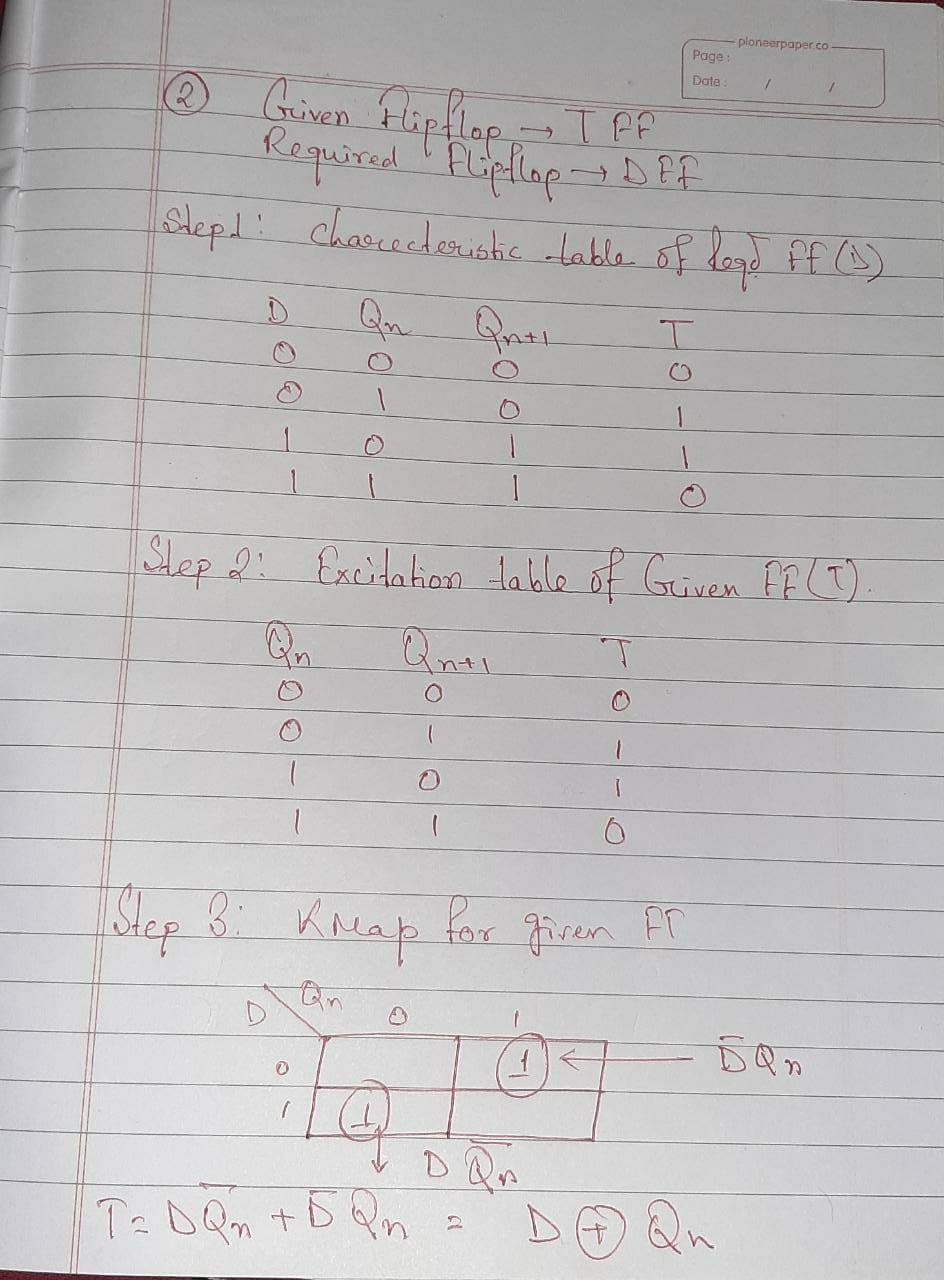 pioneerpaper.co
Page :
Date : / /
② Given Flipflop → T FF
Required Flipflop → D FF
Step1: Charecteristic table of Reqd FF (D)
D Qn Qn+1 T
0 0 0 0
0 1 0 1
1 0 1 1
1 1 1 0
Step 2: Excitation table of Given FF (T).
Qn Qn+1 T
0 0 0
0 1 1
1 0 1
1 1 0
Step 3: K Map for given FF
D \ Qn 0 1
0 1 ← D̅ Qn
1 1
↓ D Q̅n
T = D Q̅n + D̅ Qn = D ⊕ Qn